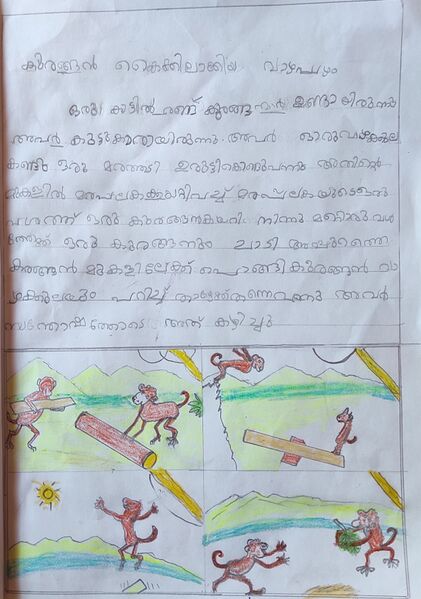 കുരങ്ങൻ കൈക്കിലാക്കിയ വാഴപ്പഴം
ഒരു കാട്ടിൽ രണ്ട് കുരങ്ങന്മാർ ഉണ്ടായിരുന്നു
അവർ കൂട്ടുകാരായിരുന്നു. അവർ ഒരുവാഴക്കുല
കണ്ടു ഒരു മരത്തടി ഉരുട്ടികൊണ്ടുവന്നു അതിന്റെ
മുകളിൽ മരപലക കയറ്റിവച്ച് മരപലകയുടെ ഒരു
വശത്ത് ഒരു കുരങ്ങൻകയറി നിന്നു മറ്റൊരു വശ
ത്തേക്ക് ഒരു കുരങ്ങനും ചാടി അപ്പുറത്തെ
കുരങ്ങൻ മുകളിലേക്ക് പൊങ്ങി കുരങ്ങൻ വാ
ഴക്കുലയും പറിച്ച് താഴേത്തന്നെവന്നു അവർ
സന്തോഷത്തോടെ അത് കഴിച്ചു